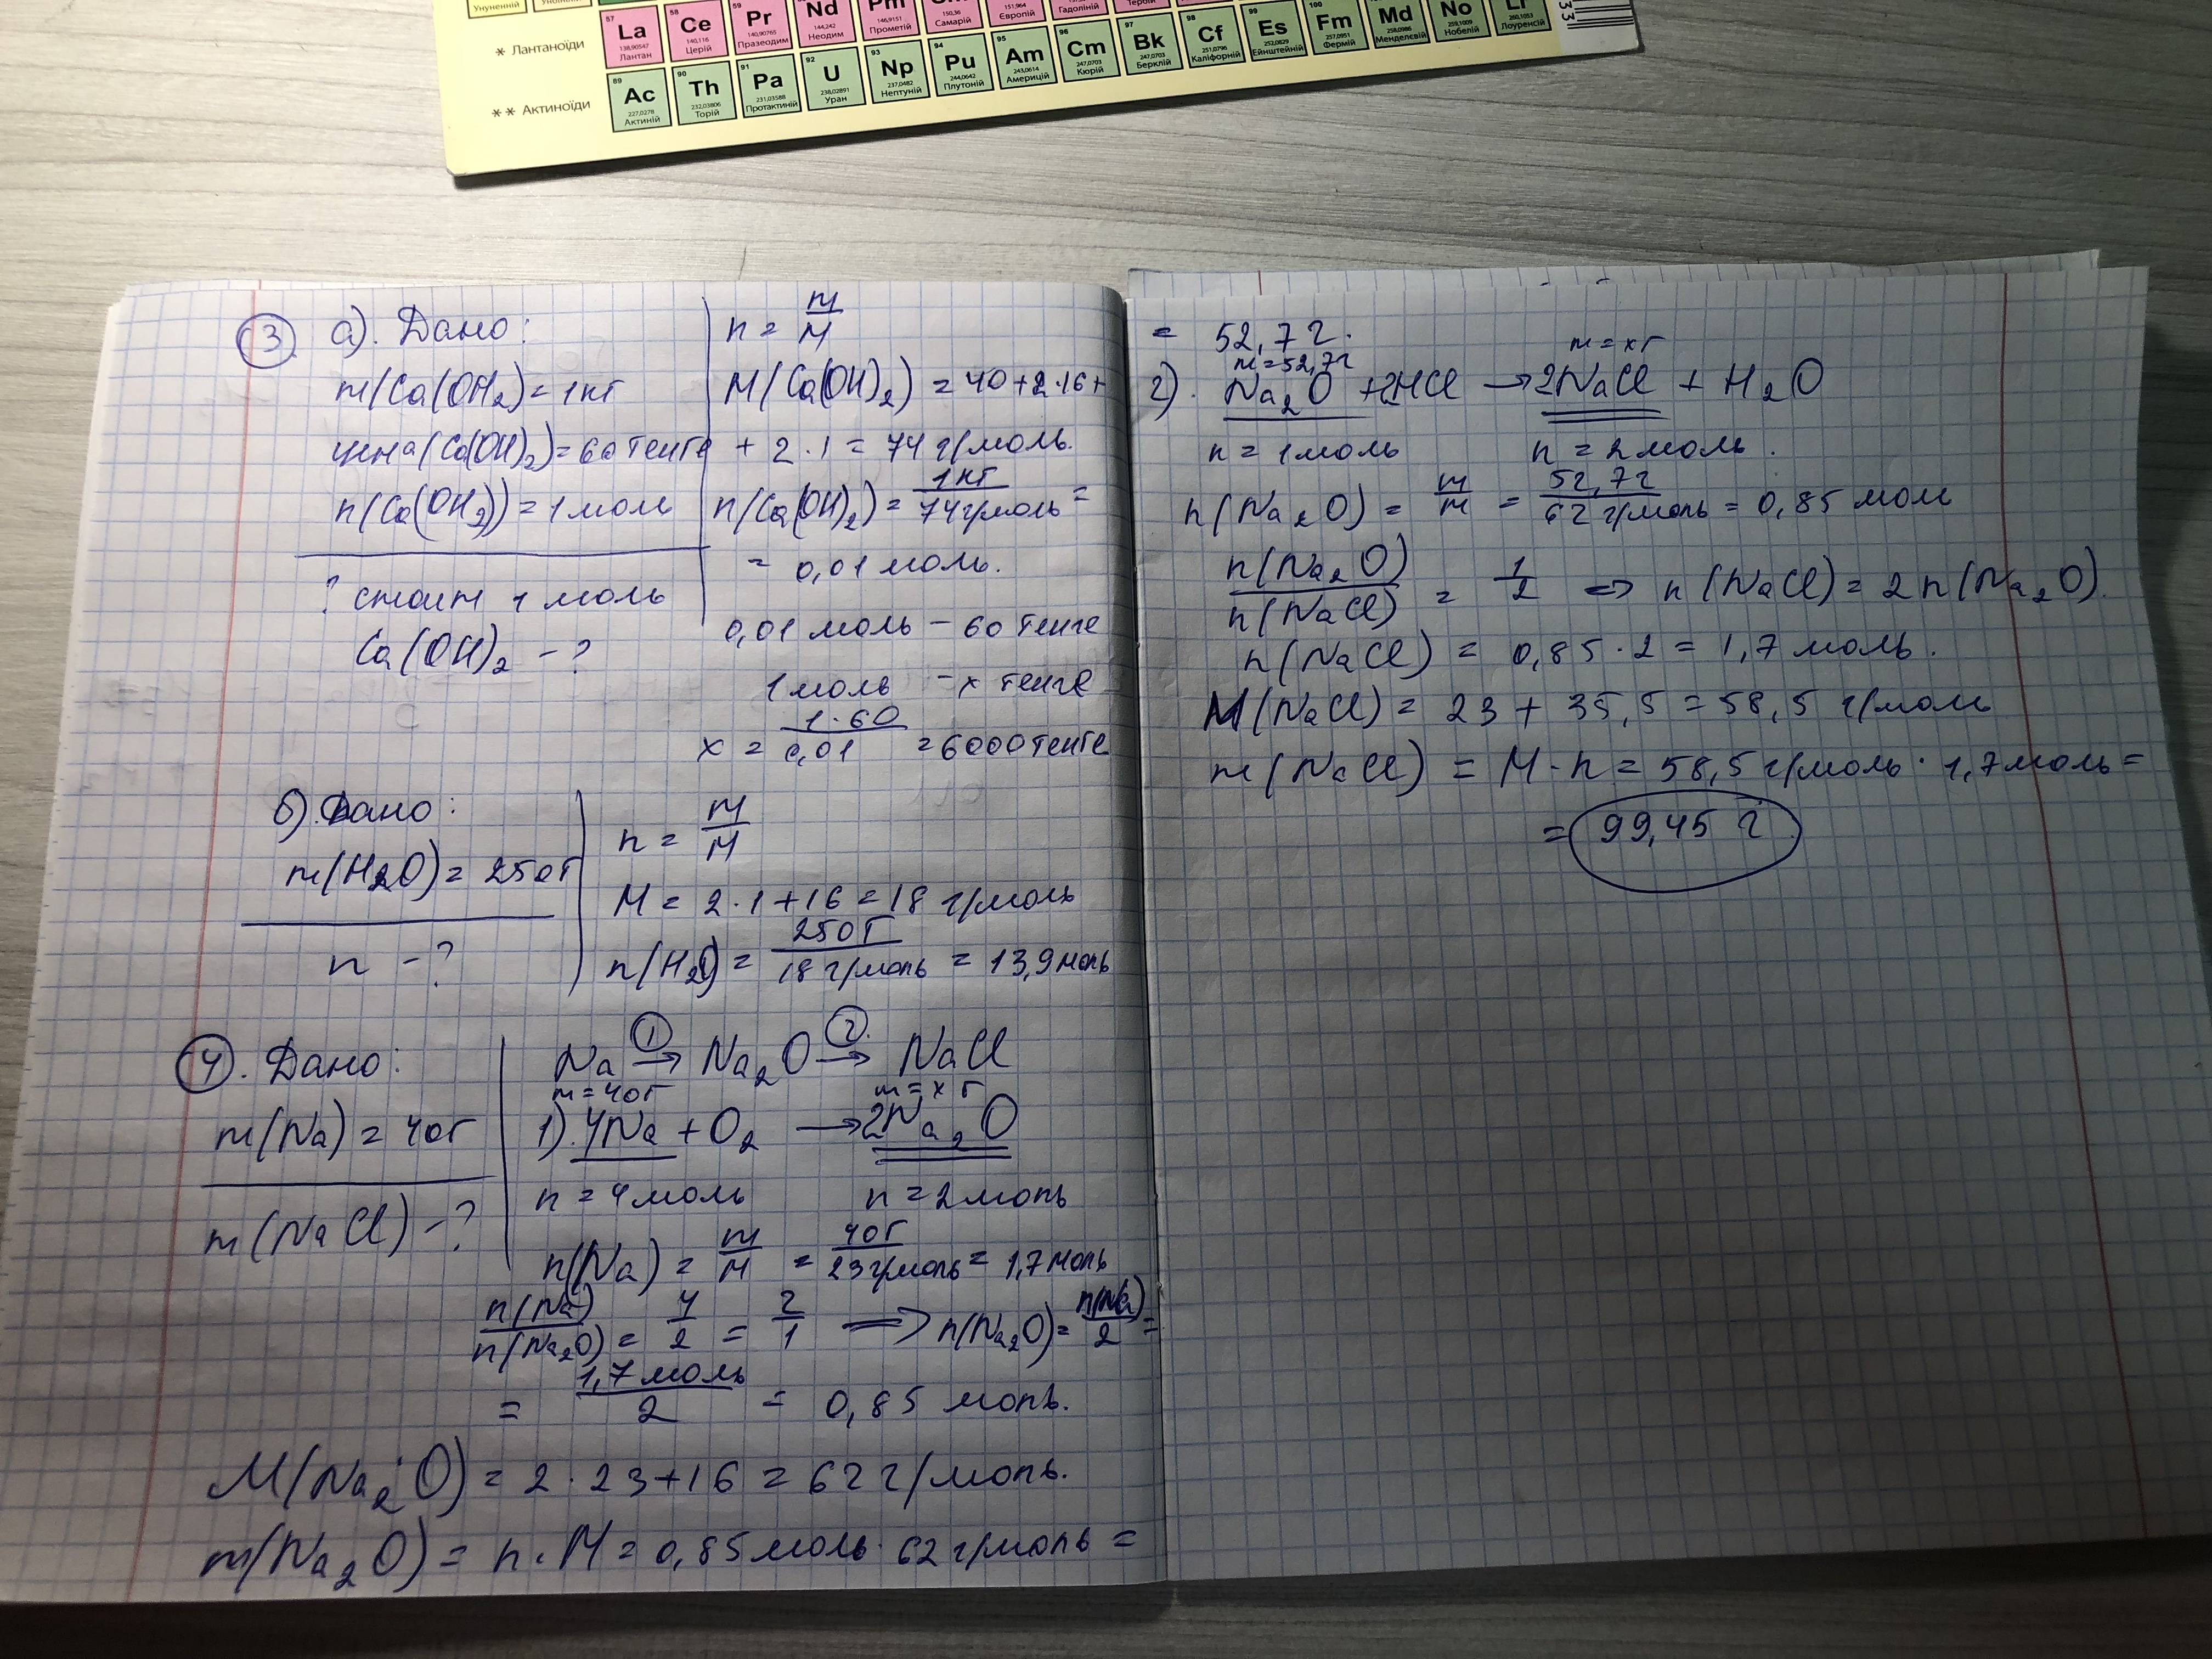 Унуненній
57 La 138,90547 Лантан
58 Ce 140,116 Церій
59 Pr 140,90765 Празеодим
Nd 144,242 Неодим
Pm 146,9151 Прометій
150,36 Самарій
151,964 Європій
Гадоліній
* Лантаноїди
89 Ac 227,0278 Актиній
90 Th 232,03806 Торій
91 Pa 231,03588 Протактиній
92 U 238,02891 Уран
93 Np 237,0482 Нептуній
94 Pu 244,0642 Плутоній
95 Am 243,0614 Америцій
96 Cm 247,0703 Кюрій
97 Bk 247,0703 Берклій
98 Cf 251,0796 Каліфорній
99 Es 252,0829 Ейнштейній
100 Fm 257,0951 Фермій
Md 258,0986 Менделєвій
No 259,1009 Нобелій
Lr 260,1053 Лоуренсій
** Актиноїди
3 а). Дано:
m(Ca(OH₂) = 1кг
цена(Ca(OH)₂) = 60 тенге
n(Ca(OH₂)) = 1 моль
? стоит 1 моль
Ca(OH)₂ - ?
n = m/M
M(Ca(OH)₂) = 40 + 2·16 +
+ 2·1 = 74 г/моль.
n(Ca(OH)₂) = 1кг/74г/моль =
= 0,01 моль.
0,01 моль – 60 тенге
1 моль – x тенге
x = 1·60/0,01 = 6000 тенге
б) Дано:
m(H₂O) = 250г
n - ?
n = m/M
M = 2·1 + 16 = 18 г/моль
n(H₂O) = 250г/18 г/моль = 13,9 моль
4. Дано:
m(Na) = 40г
m(NaCl) - ?
Na →① Na₂O →② NaCl
m = 40г m = x г
1). 4Na + O₂ → 2Na₂O
n = 4 моль n = 2 моль
n(Na) = m/M = 40г/23г/моль = 1,7 моль
n(Na)/n(Na₂O) = 4/2 = 2/1 ⟹ n(Na₂O) = n(Na)/2 =
= 1,7 моль/2 = 0,85 моль.
M(Na₂O) = 2·23 + 16 = 62 г/моль.
m(Na₂O) = n·M = 0,85 моль · 62 г/моль =
= 52,7 г.
m = 52,7г m = x г
2). Na₂O + 2HCl → 2NaCl + H₂O
n = 1 моль n = 2 моль.
n(Na₂O) = m/M = 52,7г/62 г/моль = 0,85 моль
n(Na₂O)/n(NaCl) = 1/2 ⟹ n(NaCl) = 2n(Na₂O).
n(NaCl) = 0,85·2 = 1,7 моль.
M(NaCl) = 23 + 35,5 = 58,5 г/моль
m(NaCl) = M·n = 58,5 г/моль · 1,7 моль =
= 99,45 г